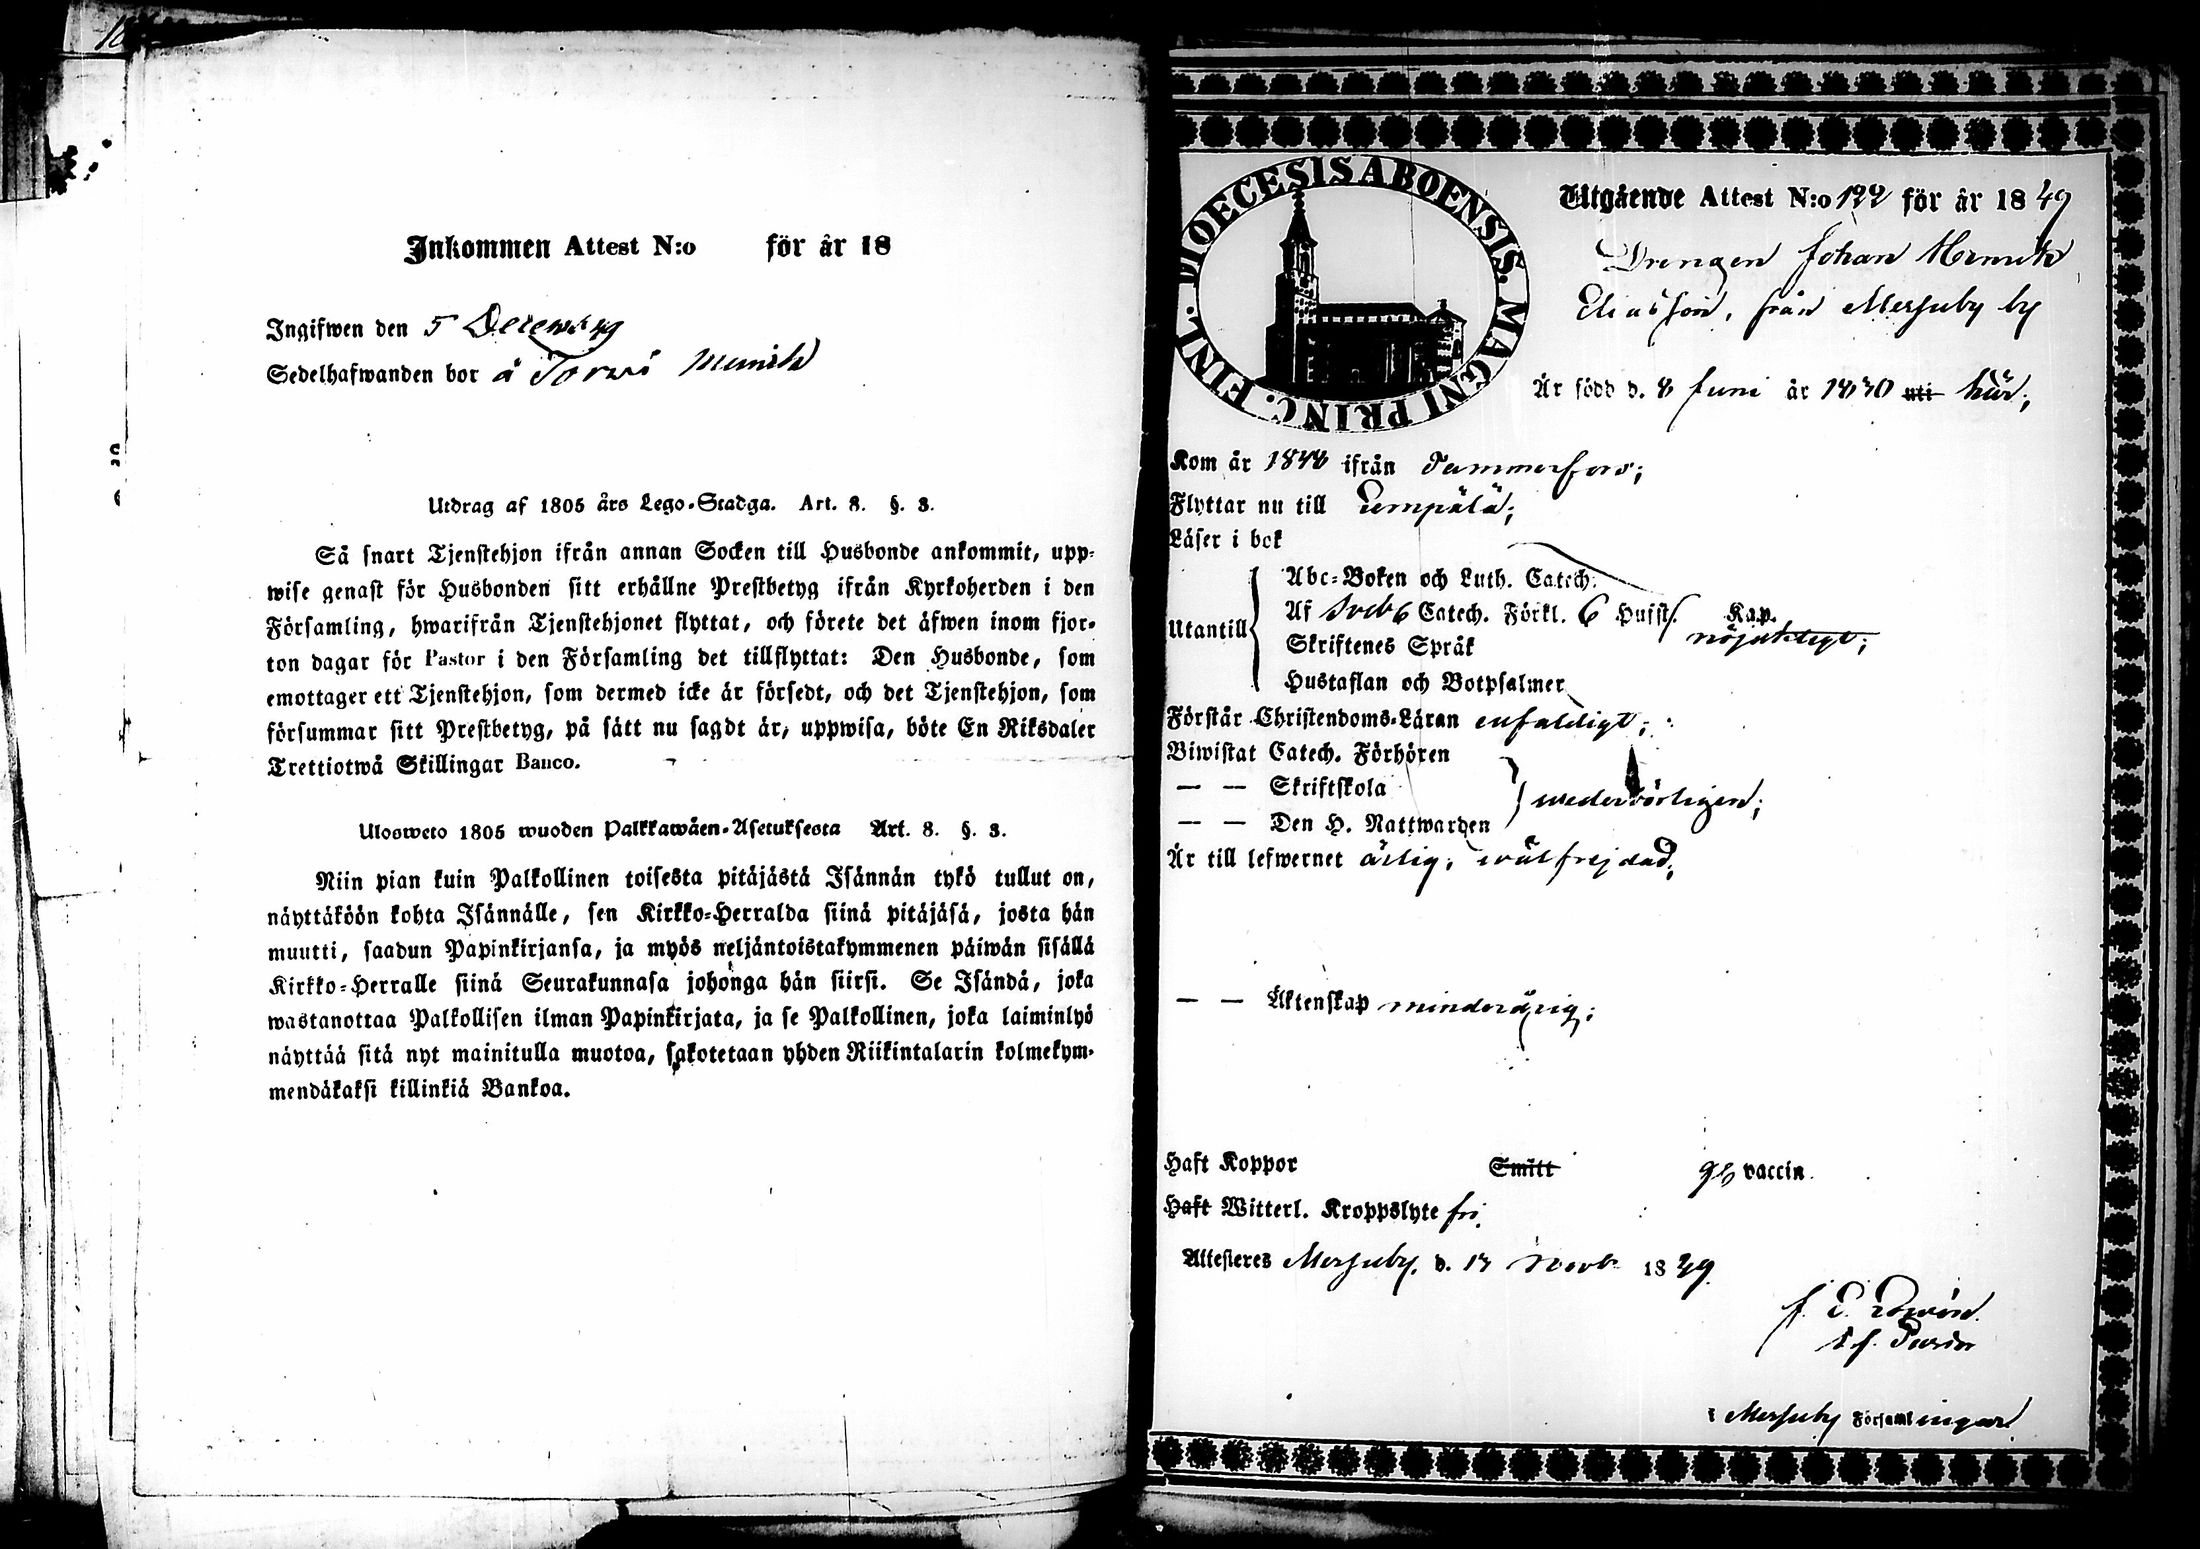 Inkommen Attest N:o för år 18
Ingifwen den 5 Decemb 49
Sedelhafwanden bor å
Utdrag af 1805 års Lego-Stadga. Art. 8. §. 3.
Så snart Tjenstehjon ifrån annan Socken till Husbonde ankommit, upp-
wise genast för Husbonden sitt erhållne Prestbetyg ifrån Kyrkoherden i den
Församling, hwarifrån Tjenstehjonet flyttat, och förete det äfwen inom fjor-
ton dagar för Pastor i den Församling det tillflyttat: Den Husbonde, som
emottager ett Tjenstehjon, som dermed icke är försedt, och det Tjenstehjon, som
försummar sitt Prestbetyg, på sätt nu sagdt är, uppwisa, böte En Riksdaler
Trettiotwå Skillingar Banco.
Ulosweto 1805 wuoden Palkkawäen-Asetuksesta Art. 8. §. 3.
Niin pian kuin Palkollinen toisesta pitäjästä Isännän tykö tullut on,
näyttäköön kohta Isännälle, sen Kirkko-Herralda siinä pitäjäsä, josta hän
muutti, saadun Papinkirjansa, ja myös neljäntoistakymmenen päiwän sisällä
Kirkko-Herralle siinä Seurakunnasa johonga hän siirsi. Se Isändä, joka
wastanottaa Palkollisen ilman Papinkirjata, ja se Palkollinen, joka laiminlyö
näyttää sitä nyt mainitulla muotoa, sakotetaan yhden Riikintalarin kolmekym-
mendäkaksi killinkiä Bankoa.
DIOECESIS ABOENSIS. MAGNI PRINC. FINL.
Utgående Attest N:o 122 för år 1849
Drengen Johan Henrik
Eliasson, från Messuby by
Är född d. 8 Juni år 1830 uti här;
Kom år 1848 ifrån Tammerfors;
Flyttar nu till Lempälä;
Läser i bok
Utantill
Abc-Boken och Luth. Catech.
Af Sveb Catech. Förkl. 6 Hufst. Kap.
nöjaktigt;
Skriftenes Språk
Hustaflan och Botpsalmer
Förstår Christendoms-Läran enfaldigt;
Biwistat Catech. Förhören
— — Skriftskola
wederbörligen;
— — Den H. Nattwarden
Är till lefwernet ärlig, wälfrejdad;
— — Äktenskap minderårig;
Haft Koppor Smitt vaccin.
Haft Witterl. Kroppslyte fri.
Attesteres Messuby. d. 13 Novb 1849.
i Messuby Församlingar.